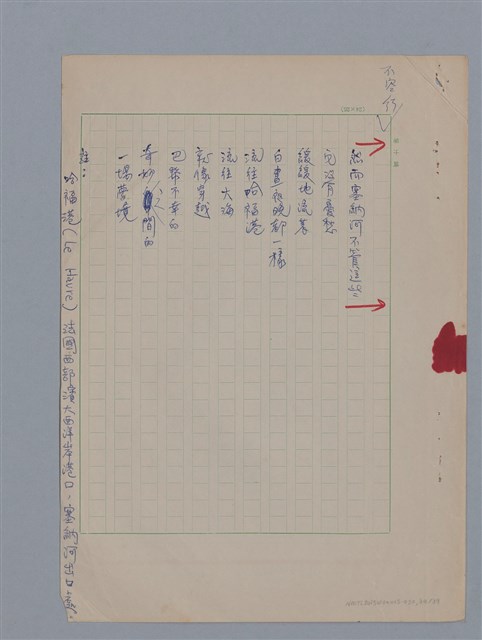 不空行
然而塞納河不管這些
它沒有憂愁
緩緩地流著
白晝夜晚都一樣
流往哈福港
流往大海
就像穿越
巴黎不幸的
奇妙人間的
一場夢境
註：
哈福港(le Havre)法國西部濱大西洋岸港口，塞納河出口